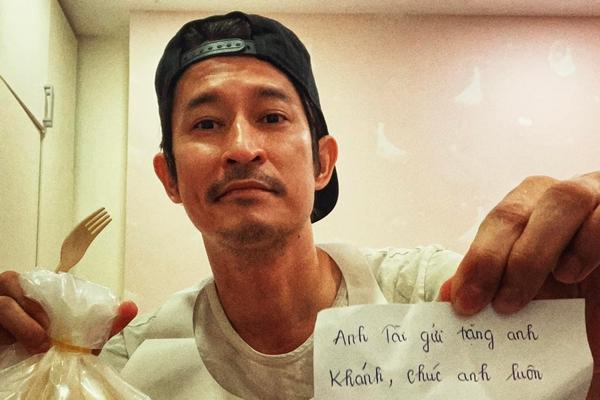 Anh Tài gửi tặng anh
Khánh, chúc anh luôn